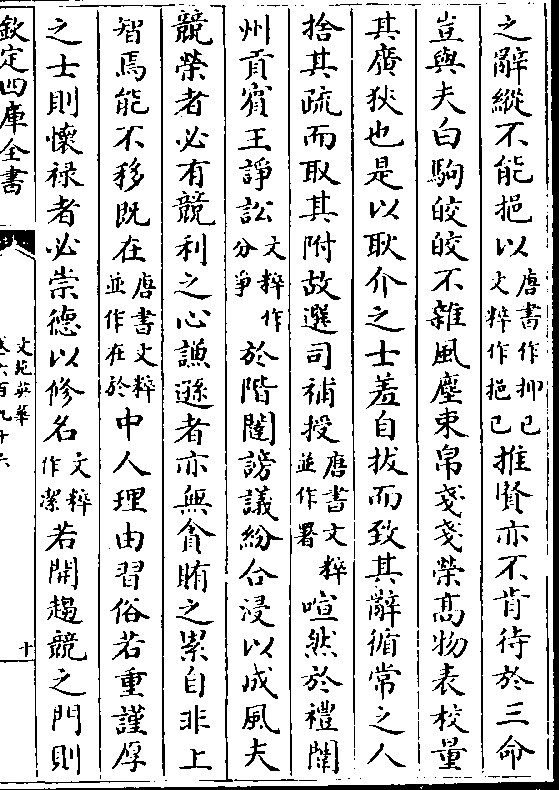 之辭縱不能挹以唐書作抑已文粹作挹已推賢亦不肯待於三命
豈與夫白駒皎皎不雜風塵束帛戔戔榮髙物表校量
其廣狹也是以耿介之士羞自拔而致其辭循常之人
捨其疏而取其附故選司補授唐書文粹並作署喧然於禮闈
州貢賓王諍訟文粹作分爭於階闥謗議紛合浸以成風夫
競榮者必有競利之心謙遜者亦無貪賄之累自非上
智焉能不移旣在唐書文粹並作在於中人理由習俗若重謹厚
之士則懷禄者必崇德以修名文粹作潔若開趨競之門則
欽定四庫全書
文苑英華
卷六百九十六
十